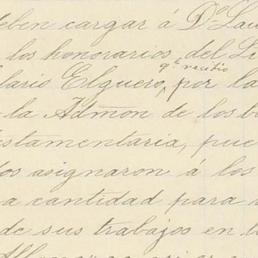 deben cargar á Dª Lau
los honorarios del Li
qᵉ recibió
lario Elguero, por la
la Admon de los b
testamentaria, pue
os asignaron á los
a cantidad para
de sus trabajos en